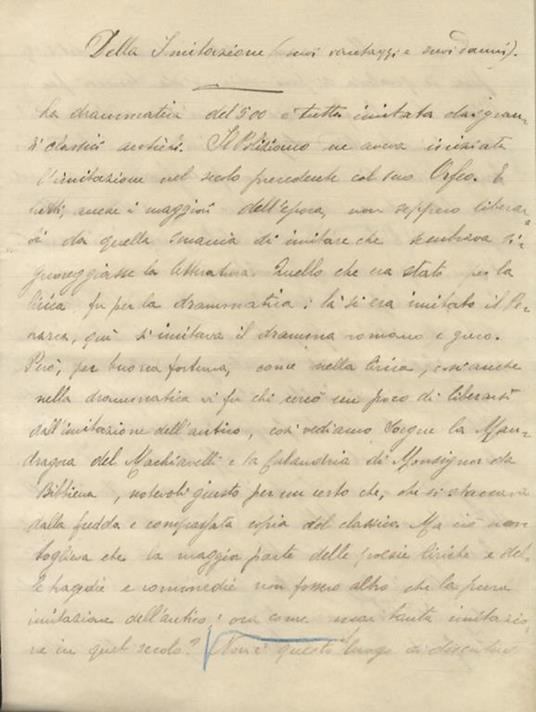 Della Imitazione (suoi vantaggi e suoi danni).
La drammatica del 500 è tutta imitata dai gran-
di classici antichi. Il Poliziano ne aveva iniziata
l'imitazione nel secolo precedente col suo Orfeo. E
tutti, anche i maggiori dell'epoca, non seppero liberar-
si da quella smania di imitare che sembrava si-
gnoreggiasse la letteratura. Quello che era stato per la
lirica fu per la drammatica; là si era imitato il Pe-
trarca, quì si imitava il dramma romano e greco.
Però, per buona fortuna, come nella lirica, così anche
nella drammatica vi fu chi cercò un poco di liberarsi
dall'imitazione dell'antico, così vediamo la Man-
dragora del Machiavelli e la Calandria di Monsignor da
Bibbiena, notevoli giusto per un certo che, che si staccava
dalla fredda e compassata copia del classico. Ma ciò non
toglieva che la maggior parte delle poesie liriche e del-
le tragedie e commedie non fossero altro che la pura
imitazione dell'antico; ora come mai tanta imitazio-
ne in quel secolo? Non è questo luogo di discutere